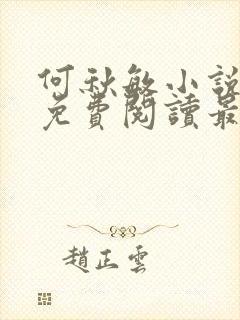 何秋敏小說
免費閱讀最
趙正雲